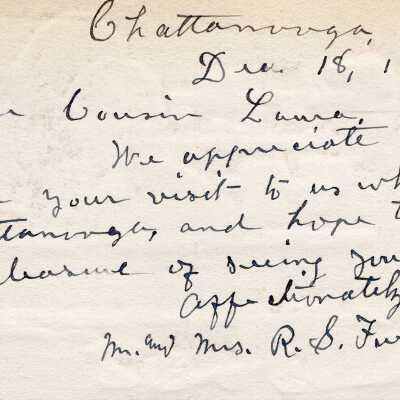 Chattanooga,
Dec. 18, 1
Cousin Laura,
We appreciate
your visit to us wh
ttanooga, and hope t
leasure of seeing you
Affectionately
Mr. and Mrs. R. S. Fu